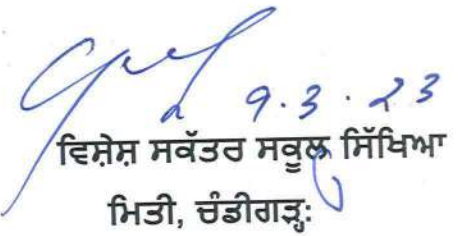 9.3.23
ਵਿਸ਼ੇਸ਼ ਸਕੱਤਰ ਸਕੂਲ ਸਿੱਖਿਆ
ਮਿਤੀ, ਚੰਡੀਗੜ੍ਹ: